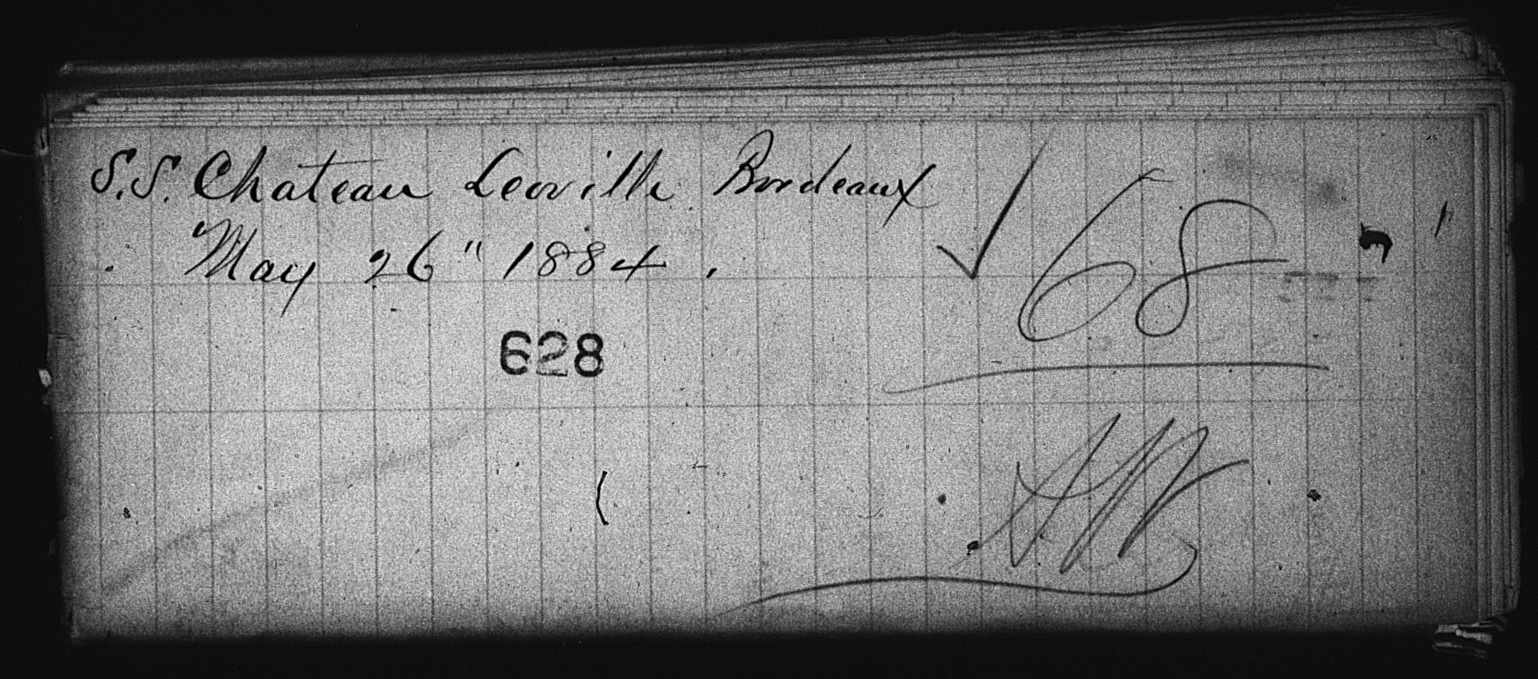 S.S. Chateau Leoville Bordeaux
May 26" 1884.
68
628